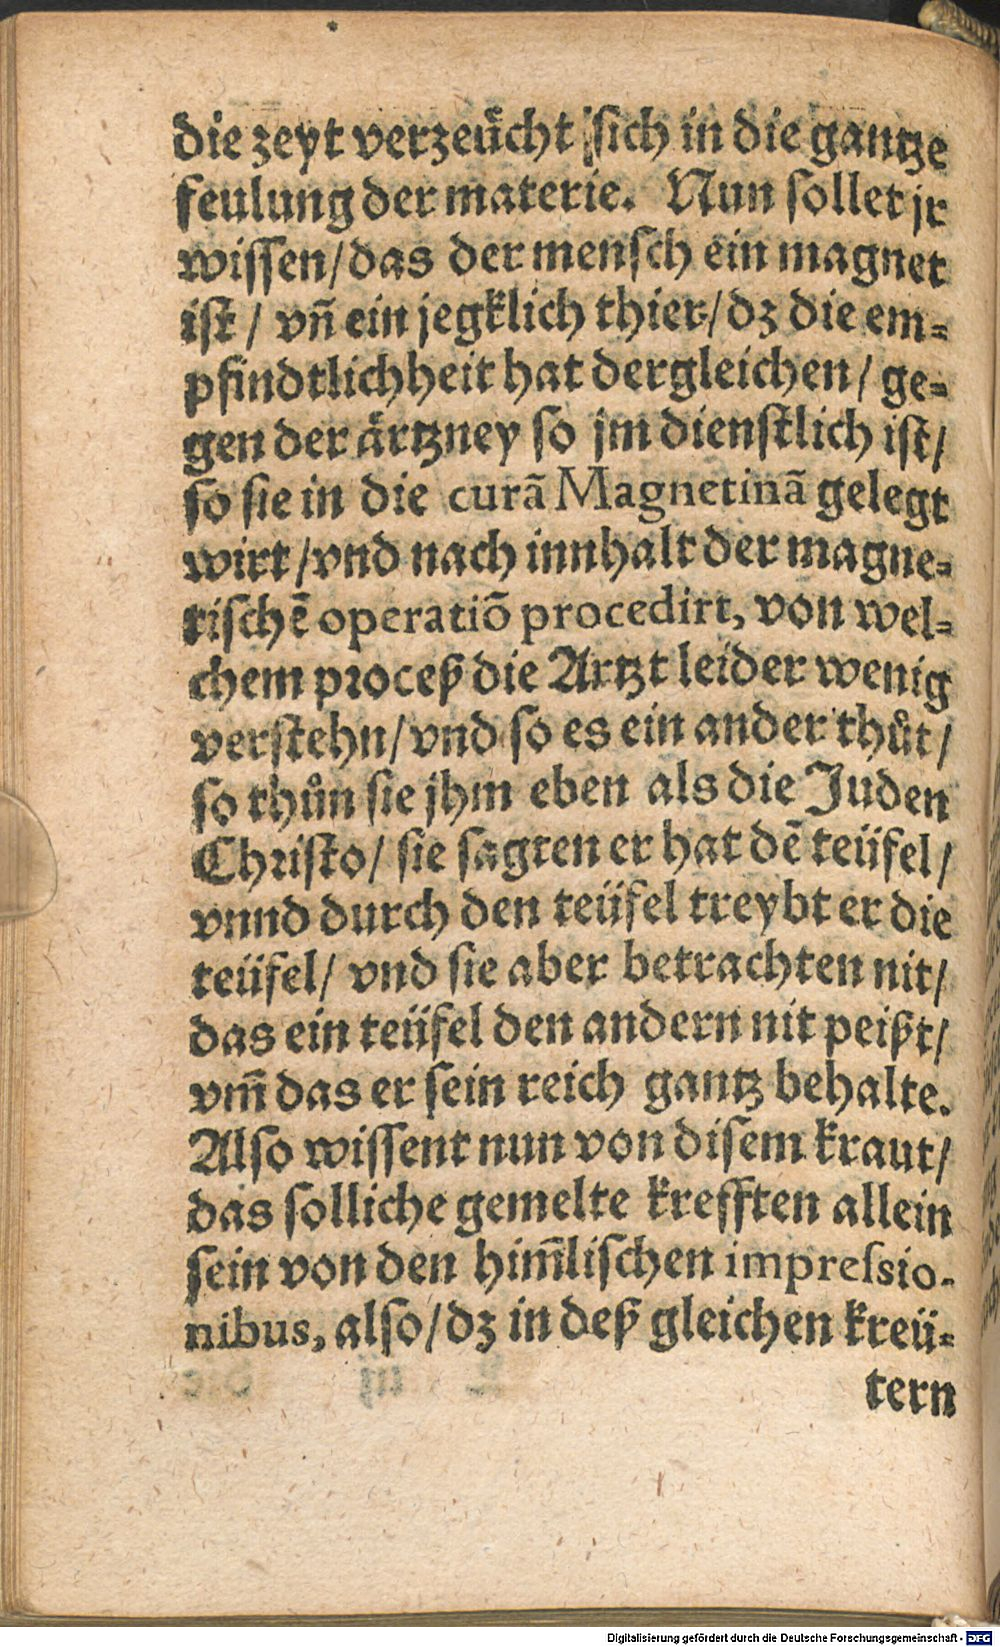 die zeyt verzeücht sich in die gantze
feulung der materie. Nun sollet jr
wissen/das der mensch ein magnet
ist / vn̄ ein jegklich thier/dz die em⸗
pfindtlichheit hat dergleichen/ ge⸗
gen der ärtzney so jm dienstlich ist/
so sie in die curã Magnetinã gelegt
wirt/vnd nach innhalt der magne⸗
tischē operatiõ procedirt, von wel⸗
chem proceß die Artzt leider wenig
verstehn/vnd so es ein ander thůt/
so thůn sie jhm eben als die Juden
Christo/ sie sagten er hat dē teüfel/
vnnd durch den teüfel treybt er die
teüfel/ vnd sie aber betrachten nit/
das ein teüfel den andern nit peißt/
vm̄ das er sein reich gantz behalte.
Also wissent nun von disem kraut/
das solliche gemelte krefften allein
sein von den him̄lischen impressio-
nibus, also/dz in deß gleichen kreü⸗
tern
Digitalisierung gefördert durch die Deutsche Forschungsgemeinschaft - DFG